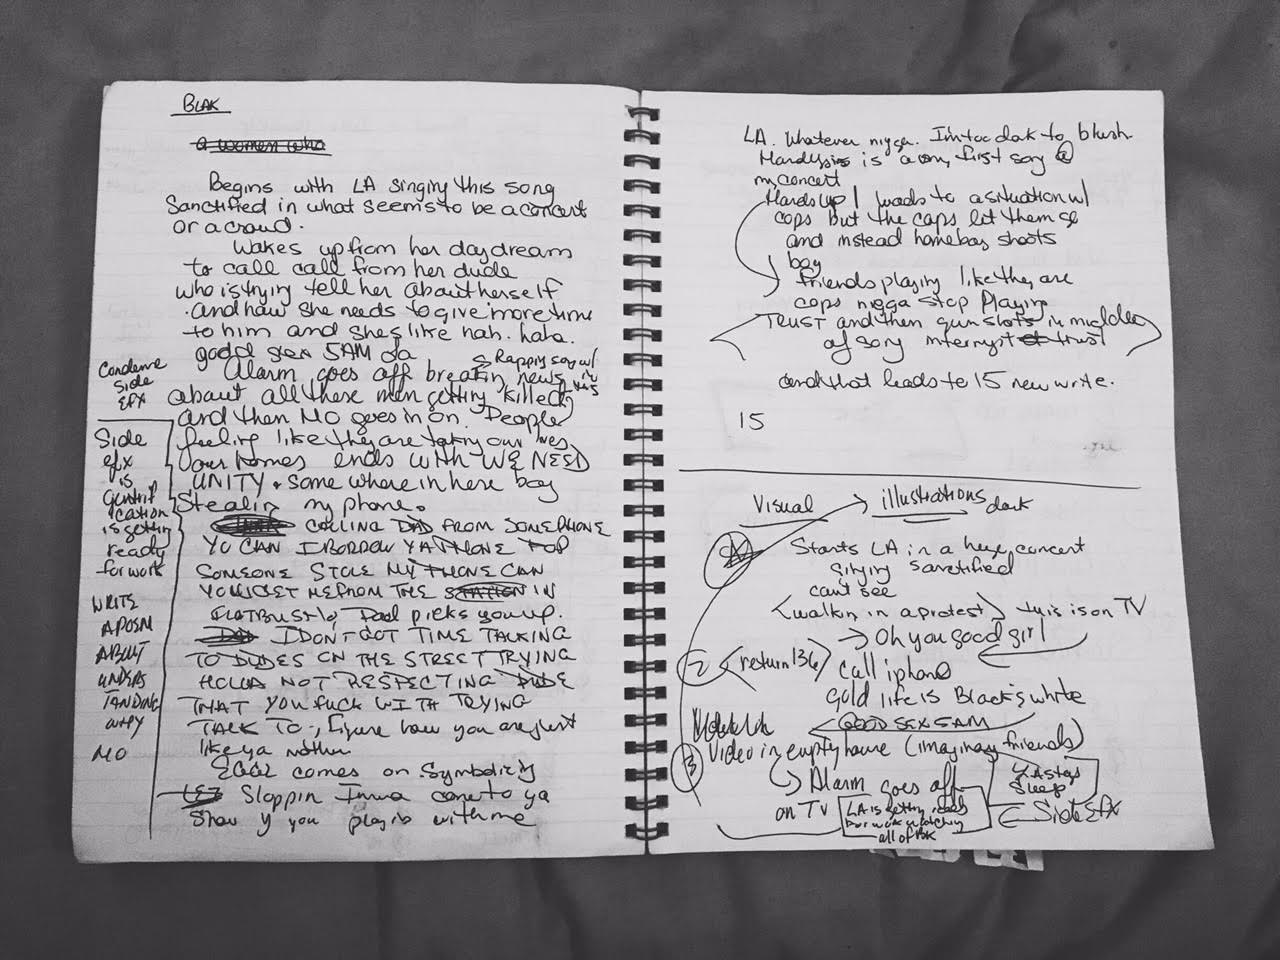 BLAK
a women who
Begins with LA singing this song
Sanctified in what seems to be a concert
or a crowd.
Wakes up from her daydream
to call call from her dude
who is trying tell her about herself
and how she needs to give more time
to him and shes like nah. haha.
good sex 5AM
Alarm goes off breakin news
Rapping song w/
about all these men getting killed
and then NO goes in on. People
feeling like they are taking our lives
our homes ends with WE NEED
UNITY & some where in here boy
Stealin my phone.
CALLING DAD FROM SOMEPHONE
YO CAN I BORROW YA PHONE
SOMEONE STOLE MY PHONE CAN
YOU GET ME FROM THE STATION IN
FLATBUSH, Dad picks you up.
I DONT GOT TIME TALKING
TO DUDES ON THE STREET TRYING
HOLLA NOT RESPECTING DUDE
THAT YOU FUCK WITH TRYING
TALK TO., Figure how you are just
like ya mother
comes on Symbolizing
Sloppin Imma come to ya
Show you playing with me
Condense
Side
EFX
Side
efx
is
Gentrif
ication
is gettin
ready
for work
WRITE
A POEM
ABOUT
UNDERS
TANDING
WHY
NO
LA. Whatever nigga. Im too dark to blush.
is a song first song @
my concert
Hands up / leads to a situation w/
cops but the cops let them go
and instead homeboy shoots
boy
friends playing like they are
cops nigga stop playing
TRUST and then gun shots in middle
of song interrupt trust
and that leads to 15 new write.
15
Visual
illustrations dark
Starts LA in a huge concert
singing sanctified
cant see
<walkin in a protest> this is on TV
→ Oh you good girl
2 <return 136>
call iphone
Gold life is Black & white
GOOD SEX 5AM
3 Video in empty house (imaginary friends)
→ Alarm goes off
on TV
LA is getting ready
for work watching
all of BK
Sleep
Side Efx